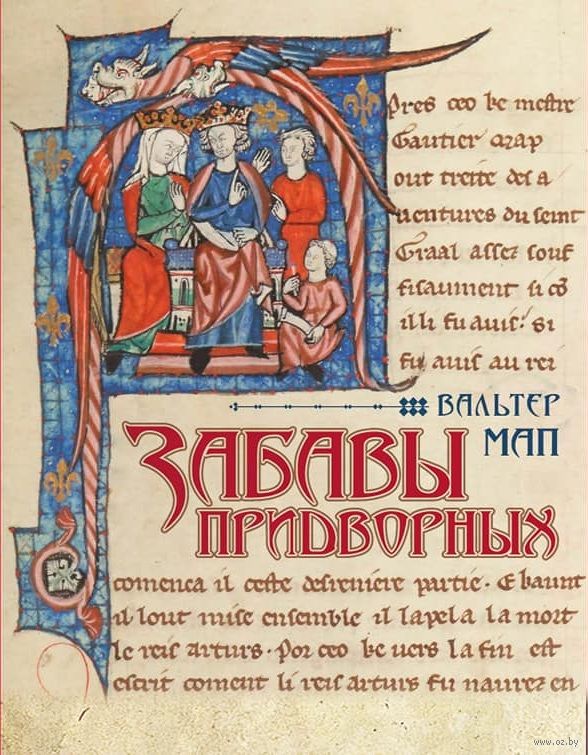 pres ceo ke mestre
Gautier map
out treite des a
uentures du seint
Graal assez souf
fisaument si cō
il li fu auis. Si
fu auis au rei
ВАЛЬТЕР
МАП
ЗАБАВЫ
ПРИДВОРНЫХ
comenca il ceste desreniere partie. E kaunt
il lout mise ensemble il lapela la mort
le reis arturs. Por ceo ke uers la fin est
escrit coment li reis arturs fu naurez en
www.oz.by